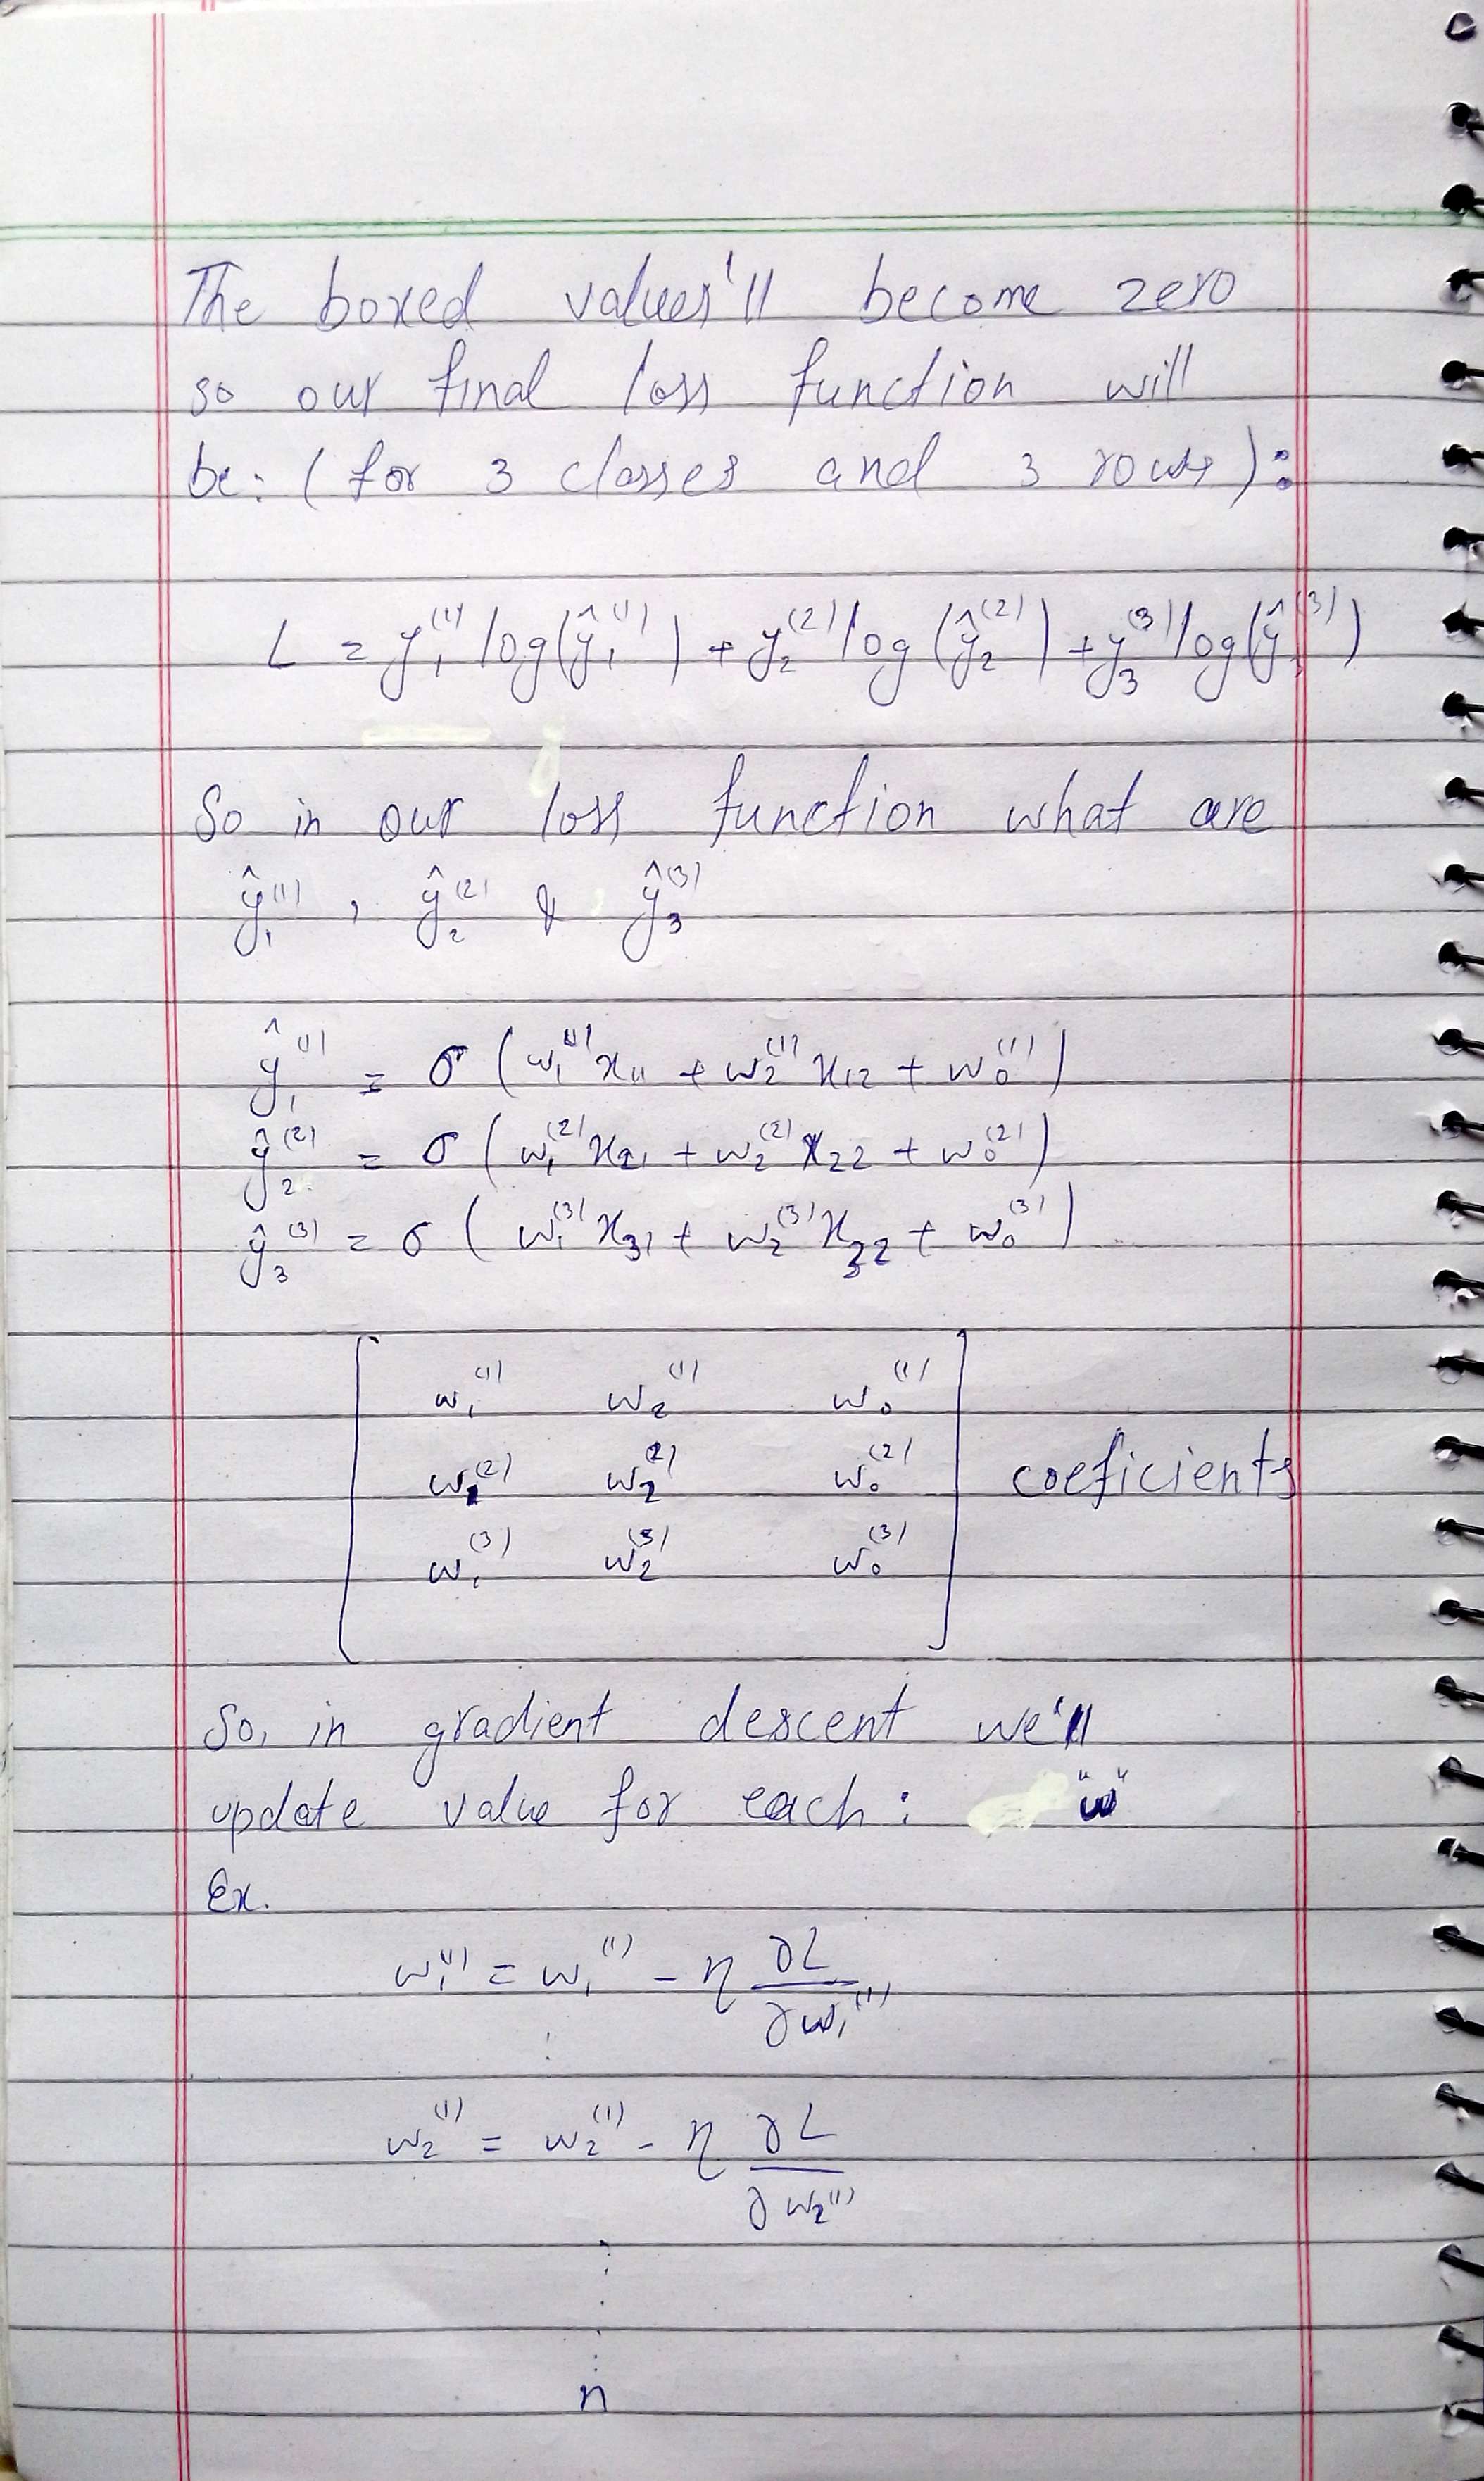 The boxed values'll become zero
so our final loss function will
be: (for 3 classes and 3 rows):
L = y₁⁽¹⁾ log(ŷ₁⁽¹⁾) + y₂⁽²⁾ log(ŷ₂⁽²⁾) + y₃⁽³⁾ log(ŷ⁽³⁾)
So in our loss function what are
ŷ₁⁽¹⁾, ŷ₂⁽²⁾ & ŷ₃⁽³⁾
ŷ₁⁽¹⁾ = σ (w₁⁽¹⁾x₁₁ + w₂⁽¹⁾x₁₂ + w₀⁽¹⁾)
ŷ₂⁽²⁾ = σ (w₁⁽²⁾x₂₁ + w₂⁽²⁾x₂₂ + w₀⁽²⁾)
ŷ₃⁽³⁾ = σ (w₁⁽³⁾x₃₁ + w₂⁽³⁾x₃₂ + w₀⁽³⁾)
w₁⁽¹⁾ w₂⁽¹⁾ w₀⁽¹⁾
w₁⁽²⁾ w₂⁽²⁾ w₀⁽²⁾ coeficients
w₁⁽³⁾ w₂⁽³⁾ w₀⁽³⁾
So, in gradient descent we'll
update value for each: "w"
Ex.
w₁⁽¹⁾ = w₁⁽¹⁾ - η ∂L/∂w₁⁽¹⁾
⋮
w₂⁽¹⁾ = w₂⁽¹⁾ - η ∂L/∂w₂⁽¹⁾
⋮
n